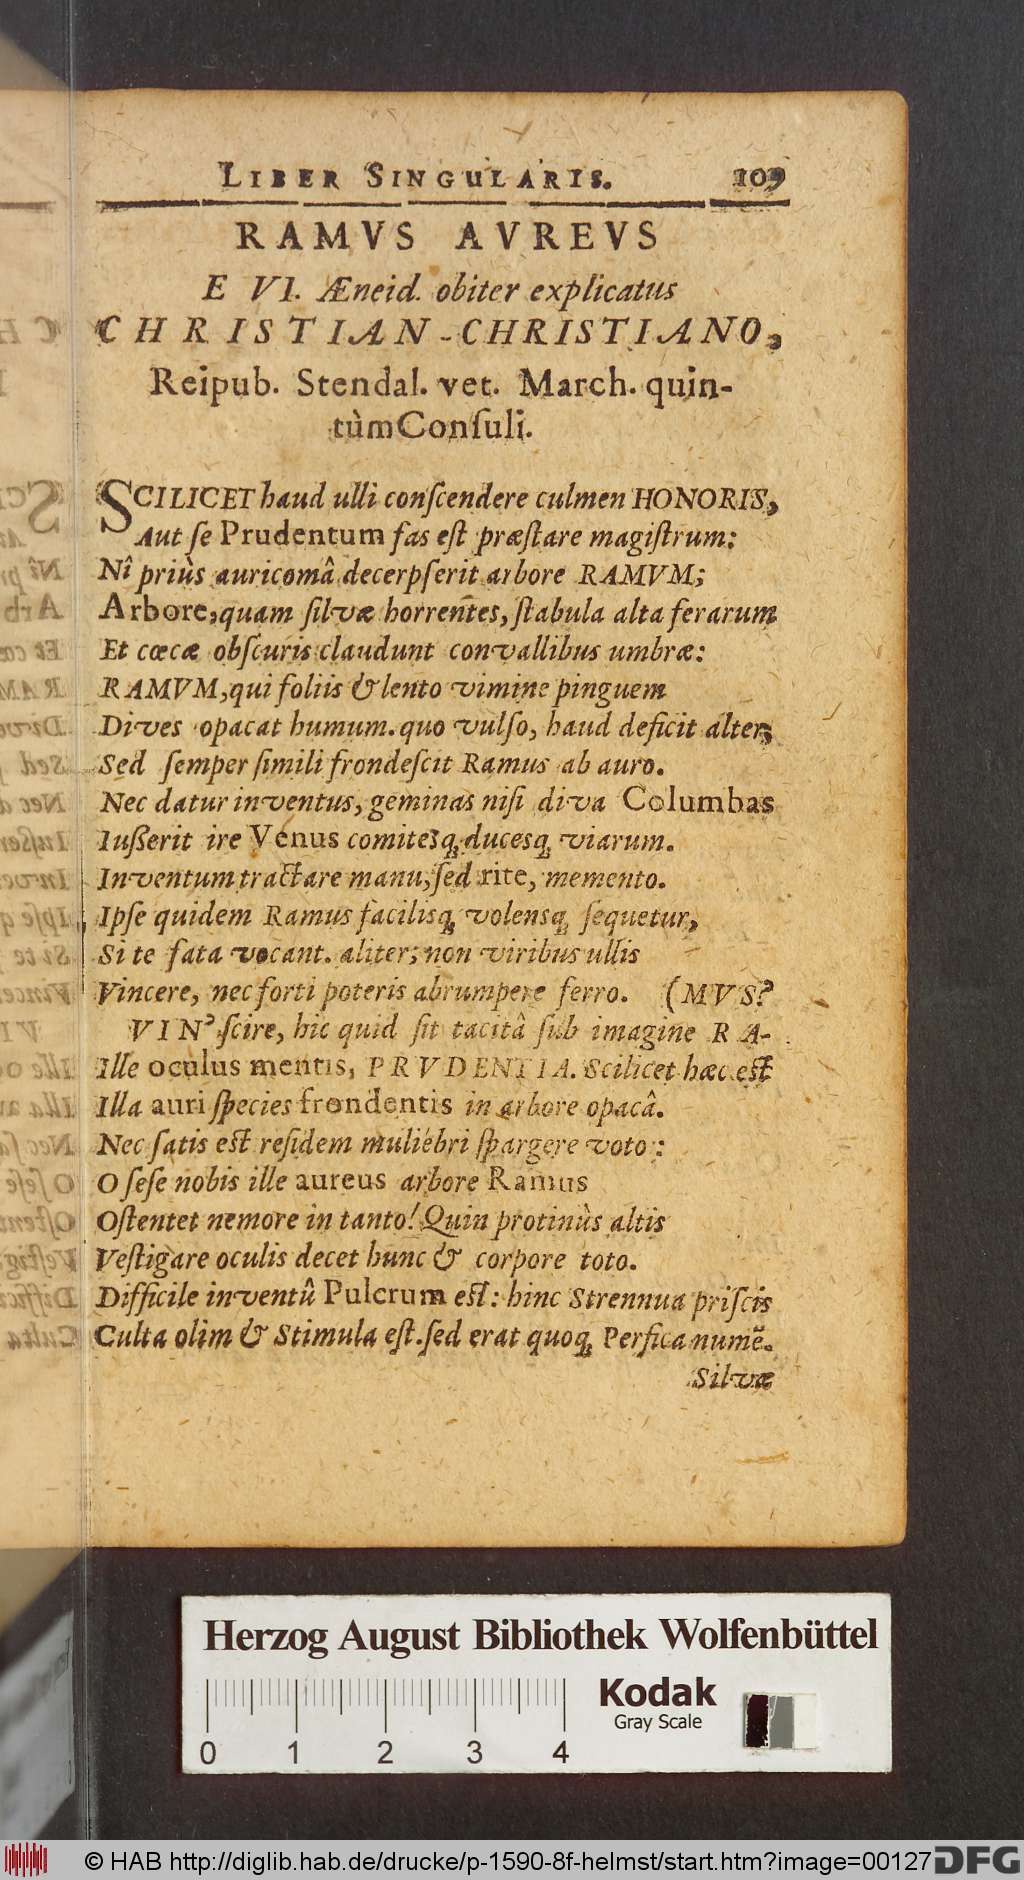 LIBER SINGULARIS. 109
RAMVS AVREVS
E VI. Æneid. obiter explicatus
CHRISTIAN-CHRISTIANO,
Reipub. Stendal. vet. March. quin-
tùm Conſuli.
SCILICET haud ulli conſcendere culmen HONORIS,
Aut ſe Prudentum fas eſt præſtare magiſtrum:
Nî priùs auricomâ decerpſerit arbore RAMVM;
Arbore, quam ſilvæ horrentes, ſtabula alta ferarum
Et cœcæ obſcuris claudunt convallibus umbræ:
RAMVM, qui foliis & lento vimine pinguem
Dives opacat humum. quo vulſo, haud deficit alter;
Sed ſemper ſimili frondeſcit Ramus ab auro.
Nec datur inventus, geminas niſi diva Columbas
Iußerit ire Venus comitesq́; ducesq́; viarum.
Inventum tractare manu, ſed rite, memento.
Ipſe quidem Ramus facilisq́; volensq́; ſequetur,
Si te fata vocant. aliter; non viribus ullis
Vincere, nec forti poteris abrumpere ferro. (MVS?
VIN' ſcire, hic quid ſit tacitâ ſub imagine RA-
Ille oculus mentis, PRVDENTIA. Scilicet hæc eſt
Illa auri ſpecies frondentis in arbore opacâ.
Nec ſatis eſt reſidem muliebri ſpargere voto:
O ſeſe nobis ille aureus arbore Ramus
Oſtentet nemore in tanto! Quin protinùs altis
Veſtigare oculis decet hunc & corpore toto.
Difficile inventû Pulcrum eſt: hinc Strennua priſcis
Culta olim & Stimula eſt. ſed erat quoq́; Perfica numē.
Silvæ
Herzog August Bibliothek Wolfenbüttel
Kodak
Gray Scale
0 1 2 3 4
© HAB http://diglib.hab.de/drucke/p-1590-8f-helmst/start.htm?image=00127 DFG